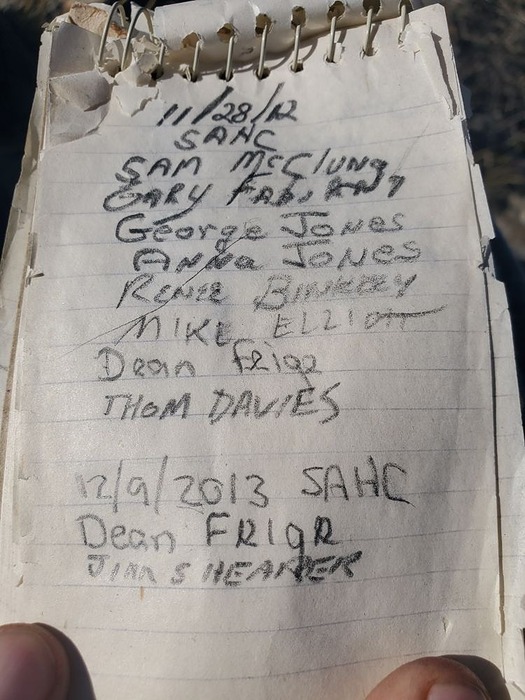 11/28/12
SAHC
SAM McClung
GARY
George Jones
Anna Jones
Renee BINKLEY
MIKE ELLIOTT
Dean
THOM DAVIES
12/9/2013 SAHC
Dean
JIM SHEARER